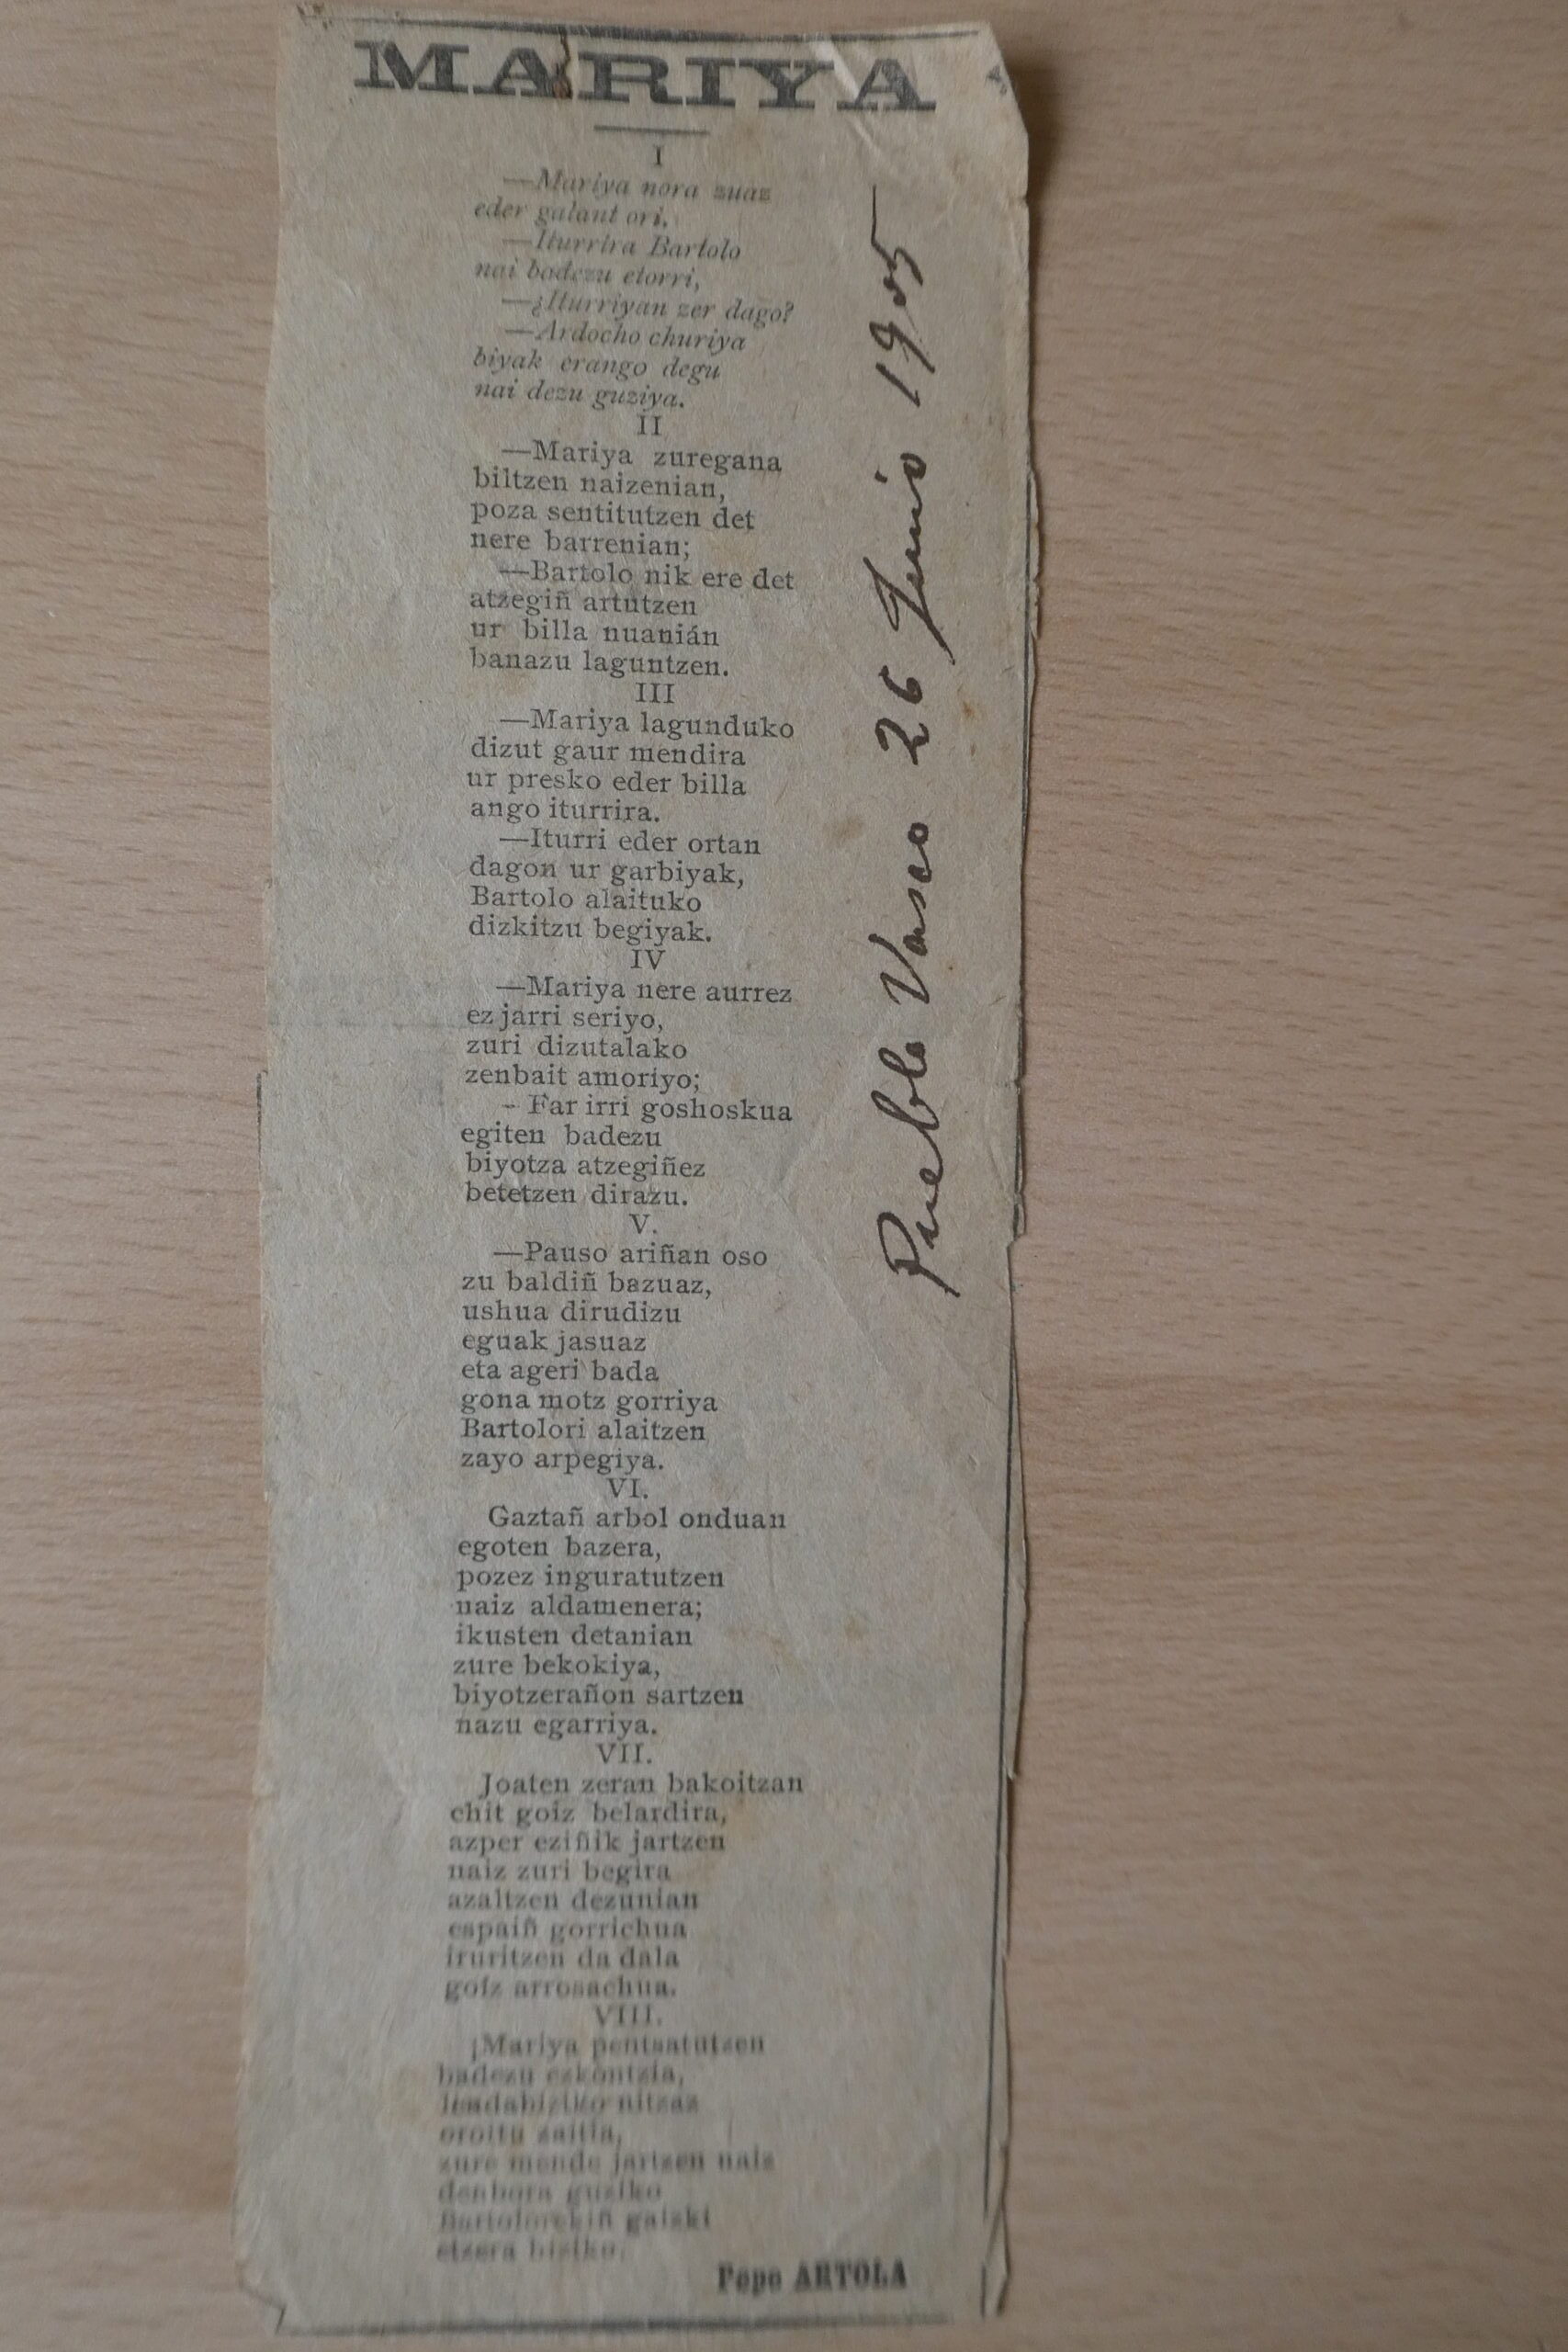 MARIYA
I
—Mariya nora zuaz
eder galant ori.
—Iturrira Bartolo
nai badezu etorri,
—¿Iturriyan zer dago?
—Ardocho churiya
biyak erango degu
nai dezu guziya.
II
—Mariya zuregana
biltzen naizenian,
poza sentitutzen det
nere barrenian;
—Bartolo nik ere det
atzegiñ artutzen
ur billa nuanián
banazu laguntzen.
III
—Mariya lagunduko
dizut gaur mendira
ur presko eder billa
ango iturrira.
—Iturri eder ortan
dagon ur garbiyak,
Bartolo alaituko
dizkitzu begiyak.
IV
—Mariya nere aurrez
ez jarri seriyo,
zuri dizutalako
zenbait amoriyo;
- Far irri goshoskua
egiten badezu
biyotza atzegiñez
betetzen dirazu.
V.
—Pauso ariñan oso
zu baldiñ bazuaz,
ushua dirudizu
eguak jasuaz
eta ageri bada
gona motz gorriya
Bartolori alaitzen
zayo arpegiya.
VI.
Gaztañ arbol onduan
egoten bazera,
pozez inguratutzen
naiz aldamenera;
ikusten detanian
zure bekokiya,
biyotzerañon sartzen
nazu egarriya.
VII.
Joaten zeran bakoitzan
chit goiz belardira,
azper eziñik jartzen
naiz zuri begira
azaltzen dezunian
espaiñ gorrichua
iruritzen da dala
goiz arrosachua.
VIII.
¡Mariya pentsatutzen
badezu ezkontzia,
lendabiziko nitzaz
oroitu zaitia,
zure mende jartzen naiz
denbora guziko
Bartolorekiñ gaizki
etzera biziko.
Pepe ARTOLA
Pueblo Vasco 26 Junio 1905